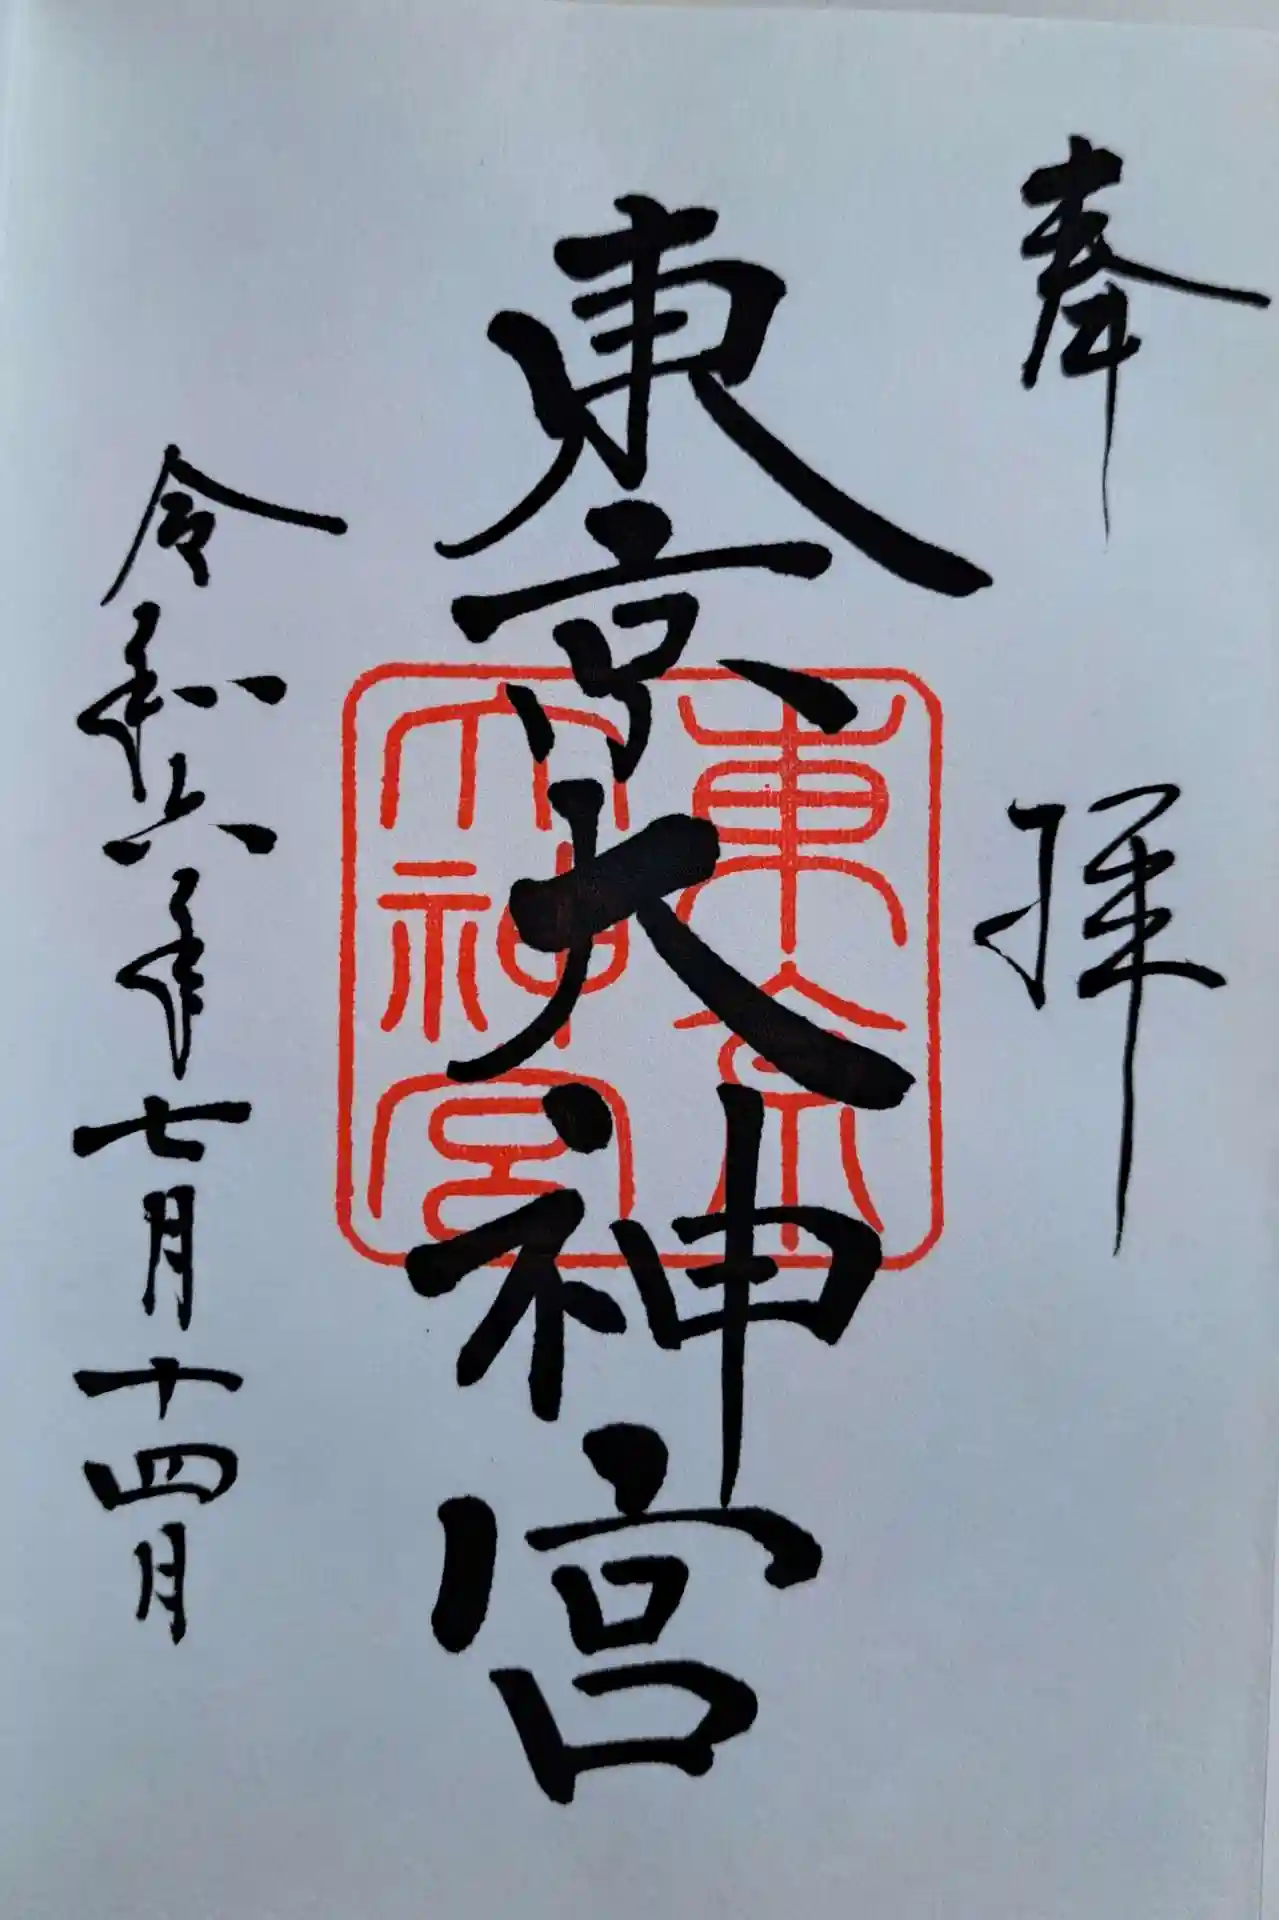 奉拝
東京大神宮
東京
大神宮
令和六年七月十四日